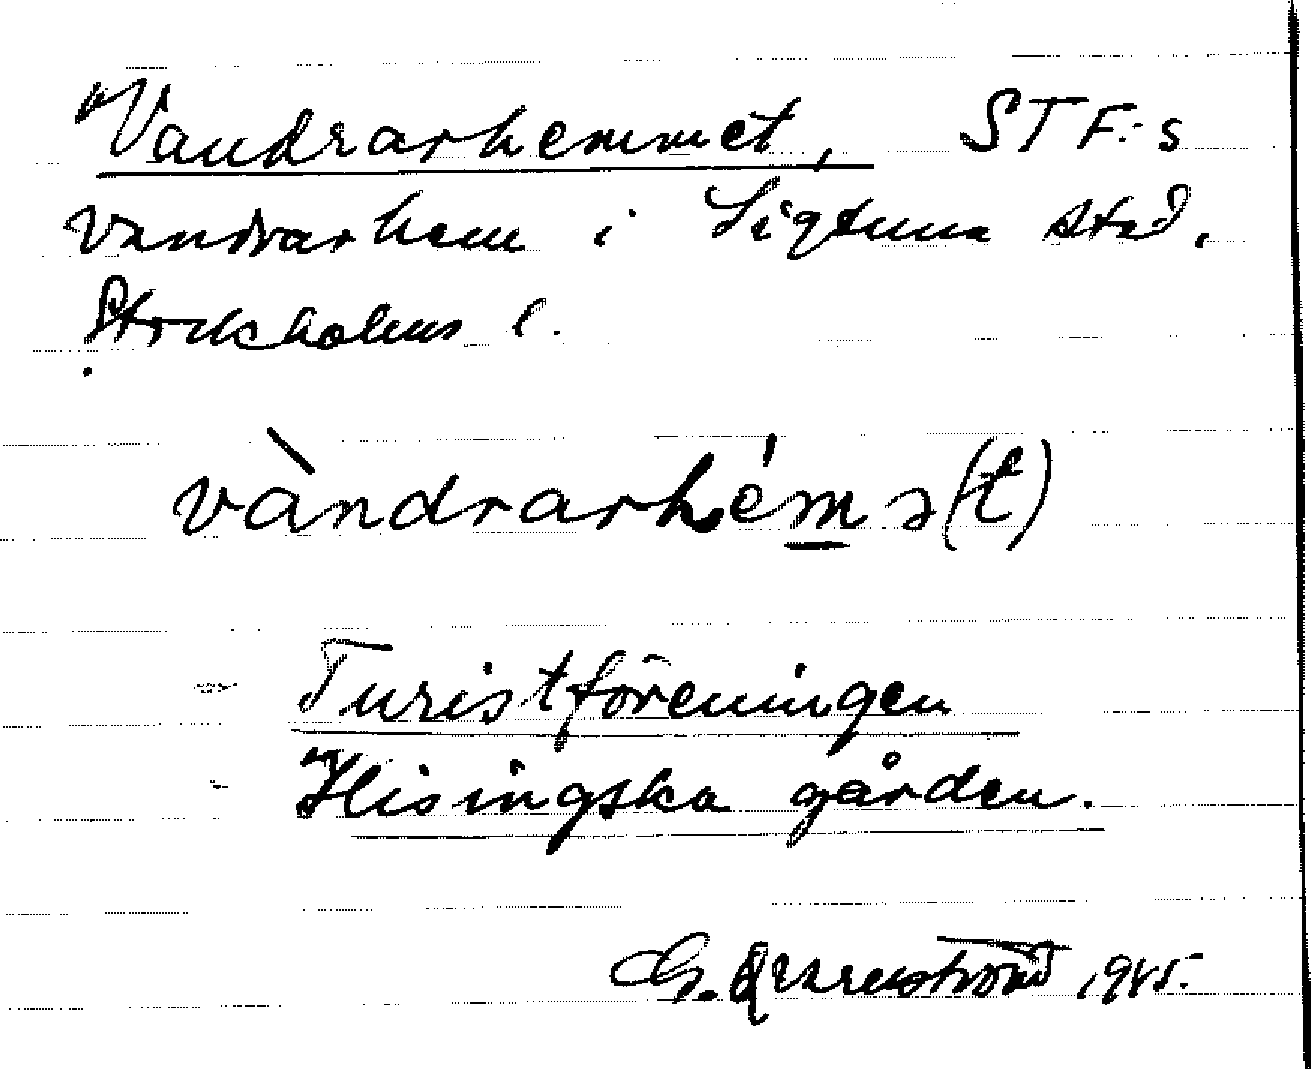 Vandrarhemmet, STF:s
vandrarhem i Sigtuna stad.
Stockholms l.
vàndrarhém ə(t)
= Turistföreningen
= Hisingska gården.
G. 1945.